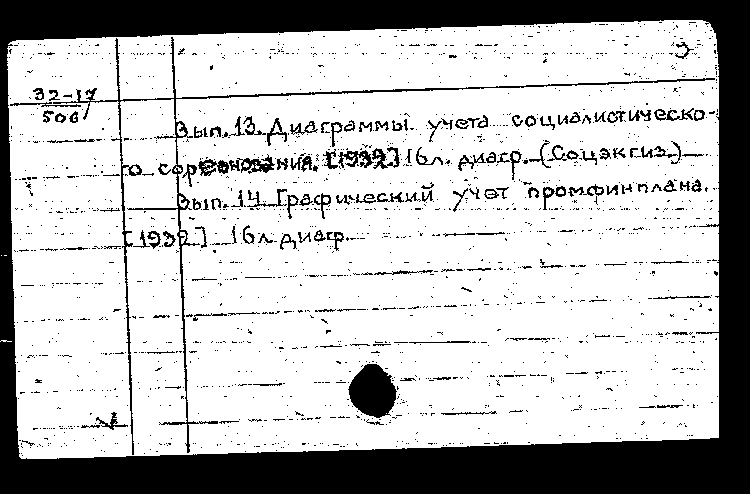 32-17
506
Вып. 13. Диаграммы учета социалистическо-
го соревнования. [1932] 16 л. диагр. (Соцэкгиз.)
Вып. 14. Графический учет промфинплана.
[1932] 16 л. диагр.